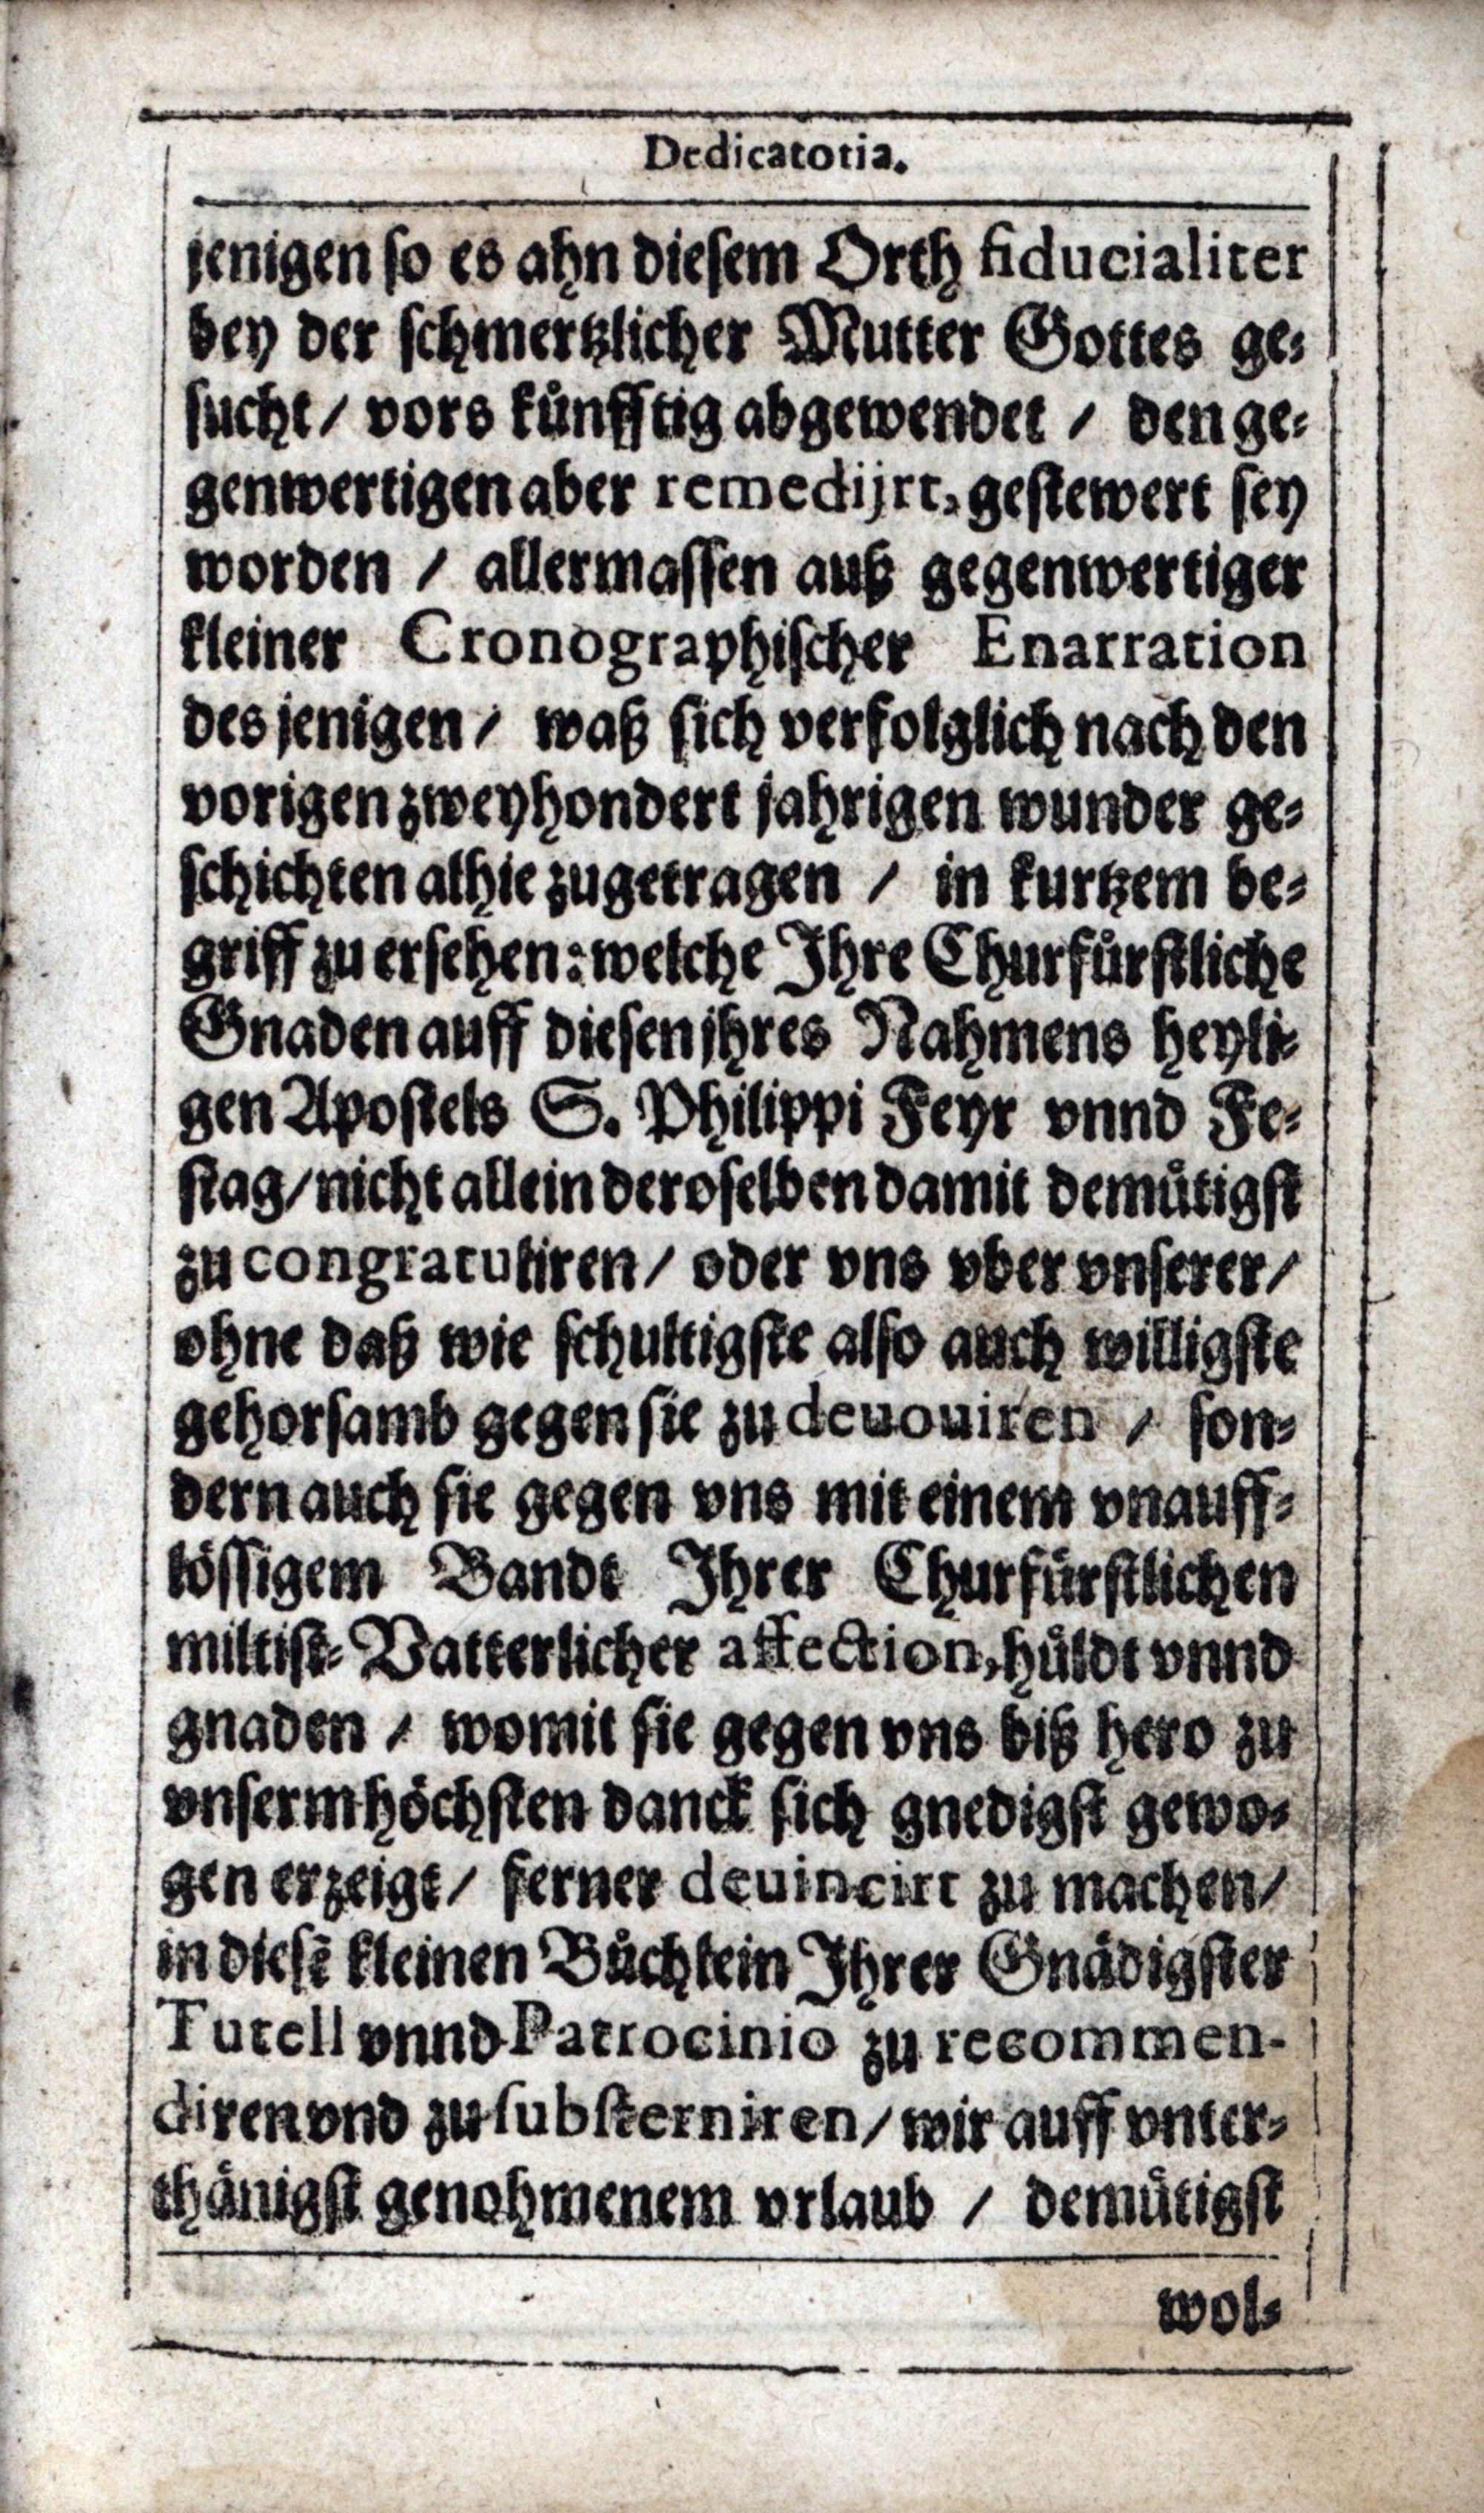 Dedicatoria.
jenigen so es ahn diesem Orth fiducialiter
bey der schmertzlicher Mutter Gottes ge-
sucht / vors kůnfftig abgewendet / den ge-
genwertigen aber remedijrt, gestewert sey
worden / allermassen auß gegenwertiger
kleiner Cronographischer Enarration
des jenigen / waß sich verfolglich nach den
vorigen zweyhondert jahrigen wunder ge-
schichten alhie zugetragen / in kurtzem be-
griff zu ersehen: welche Ihre Churfůrstliche
Gnaden auff diesen jhres Nahmens heyli-
gen Apostels S. Philippi Feyr vnnd Fe-
stag / nicht allein deroselben damit demůtigst
zu congratuliren / oder vns vber vnserer /
ohne daß wie schultigste also auch willigste
gehorsamb gegen sie zu deuouiren / son-
dern auch sie gegen vns mit einem vnauff-
lössigem Bandt Ihrer Churfůrstlichen
miltist- Vatterlicher affection, hůldt vnnd
gnaden / womit sie gegen vns biß hero zu
vnserm höchsten danck sich gnedigst gewo-
gen erzeigt / ferner deuincirt zu machen /
in diesẽ kleinen Bůchlein Ihrer Gnädigster
Tutell vnnd Patrocinio zu recommen-
diren vnd zu substerniren / wir auff vnter-
thänigst genohmenem vrlaub / demůtigst
wol-